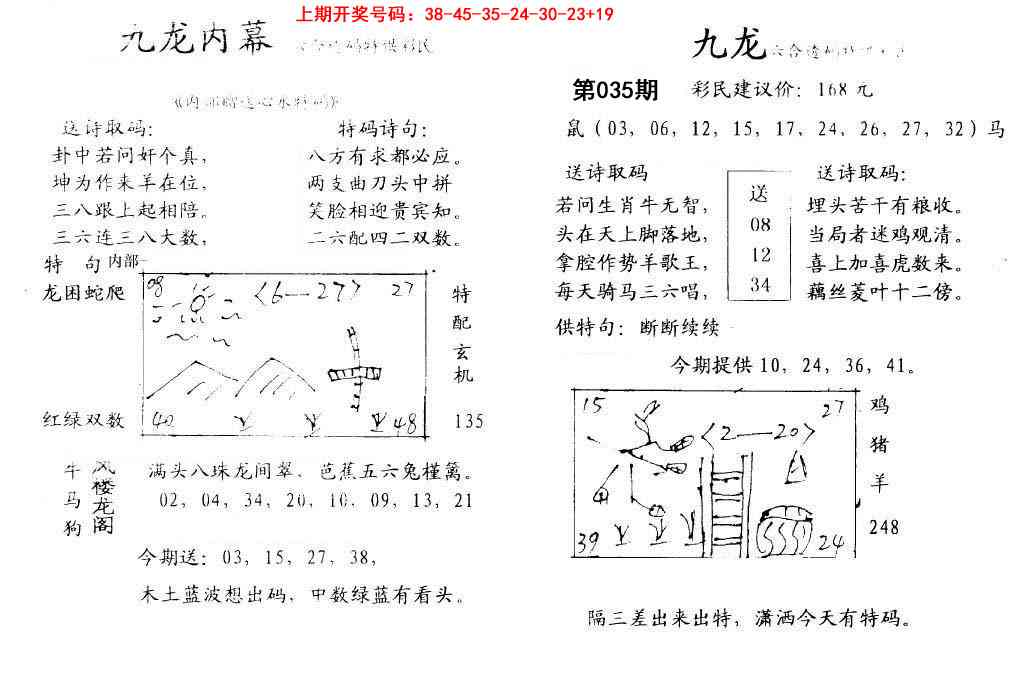 上期开奖号码：38-45-35-24-30-23+19
九龙内幕
送诗取码：
卦中若问奸个真，
坤为作来羊在位，
三八跟上起相陪。
三六连三八大数，
特码诗句：
八方有求都必应。
两支曲刀头中拼
笑脸相迎贵宾知。
二六配四二双数。
特 句内部
龙困蛇爬
红绿双数
08
<6—27>
27
40
48
特配玄机
135
牛马狗
凤楼龙阁
满头八珠龙间翠．芭蕉五六兔槿篱。
02，04，34，20，10．09，13，21
今期送：03，15，27，38，
木土蓝波想出码、中数绿蓝有看头。
九龙
第035期
彩民建议价：168元
鼠（03，06，12，15，17，24，26，27，32）马
送诗取码
若问生肖牛无智，
头在天上脚落地，
拿腔作势羊歌王，
每天骑马三六唱，
送
08
12
34
送诗取码：
埋头苦干有粮收。
当局者迷鸡观清。
喜上加喜虎数来。
藕丝菱叶十二傍。
供特句：断断续续
今期提供10，24，36，41。
15
27
<2—20>
39
24
鸡
猪
羊
248
隔三差出来出特，潇洒今天有特码。